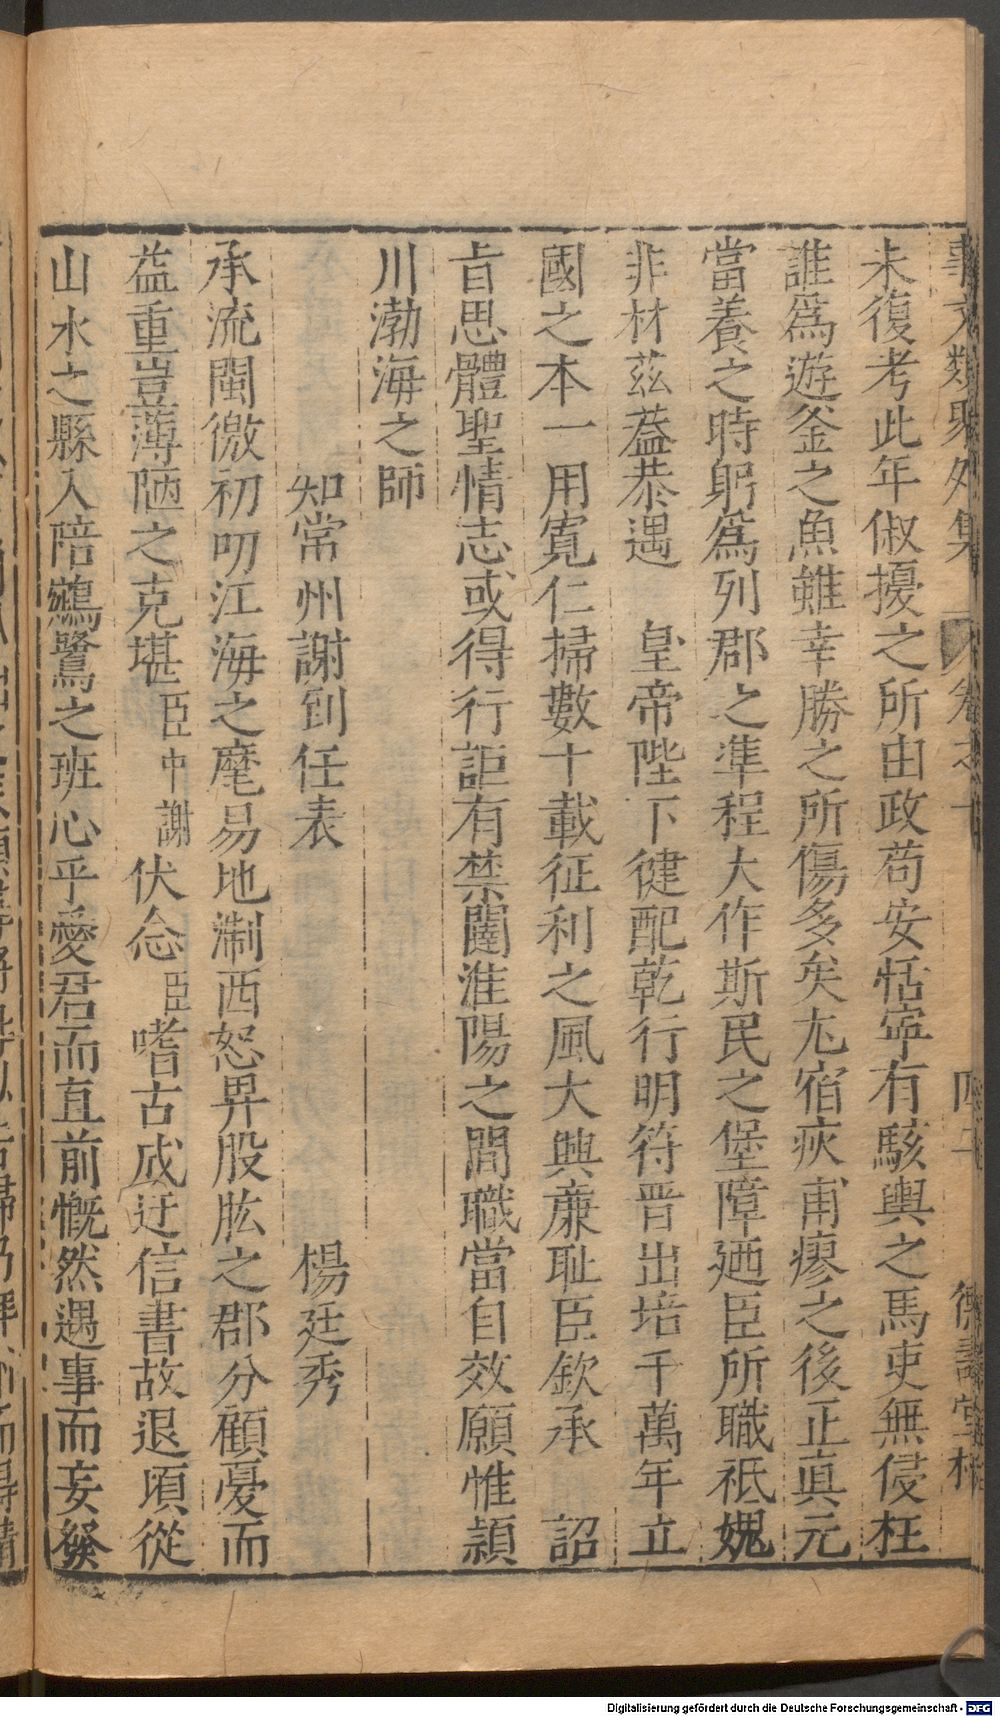 事文類聚外集 卷之十 四十 德壽堂梓
未復考此年俶擾之所由政苟安恬寧有駭輿之馬吏無侵枉
誰爲遊釜之魚雖幸勝之所傷多矣尢宿疢甫瘳之後正眞元
當養之時躬爲列郡之準程大作斯民之堡障廼臣所職祗媿
非材茲葢恭遇 皇帝陛下健配乾行明符晋出培千萬年立
國之本一用寬仁掃數十載征利之風大興廉耻臣欽承 詔
旨思體聖情志或得行詎有禁闥淮陽之間職當自效願惟潁
川渤海之師
知常州謝到任表 楊廷秀
承流閩徼初叨江海之麾易地淛西恕畀股肱之郡分顧憂而
益重豈薄陋之克堪臣中謝伏念臣嗜古成迂信書故退頃從
山水之縣入陪鵷鷺之班心乎愛君而直前慨然遇事而妄發
Digitalisierung gefördert durch die Deutsche Forschungsgemeinschaft - DFG